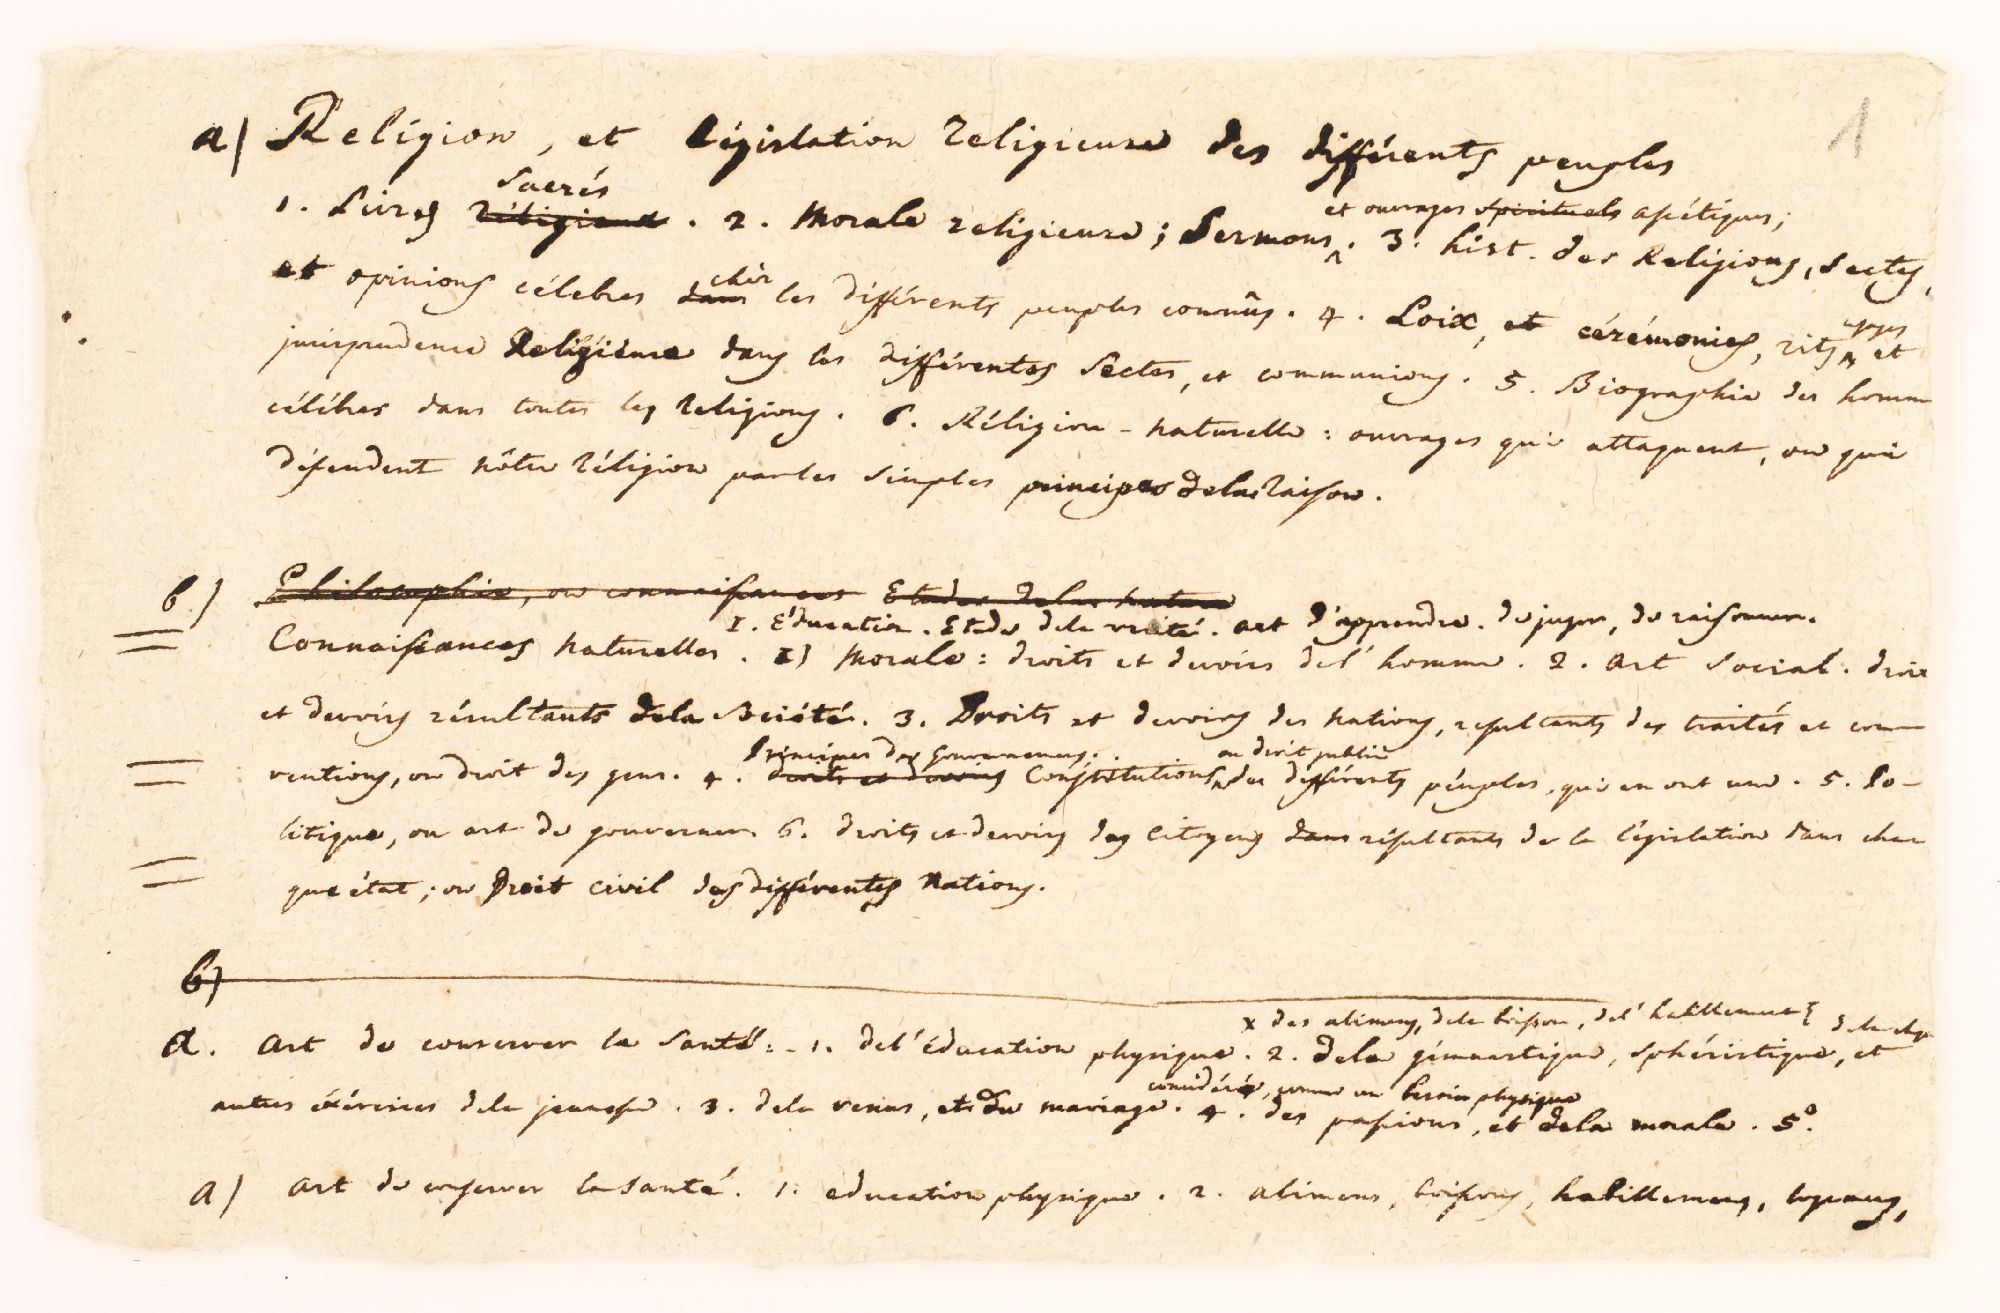 1
a) Religion, et législation religieuse des différents peuples
sacrés
1. Livres réligieux. 2. Morale religieuse; Sermons. 3. hist. des Religions, sectes,
et ouvrages spirituels ascétiques;
et opinions célebres dans les différents peuples connûs. 4. Loix, et cérémonies, rits et
chés
usages
jurisprudence Religieuse dans les différentes sectes, et communions. 5. Biographie des homm
célébres dans toutes les religions. 6. Réligion-naturelle: ouvrages qui attaquent, ou qui
défendent nôtre réligion par les simples principes de la raison.
b.) Philosophie, ou connaissances Etudes de la nature
1. Education. Etude de la verité. art d'apprendre. de juger, de raisonner.
Connaissances naturelles. 1) Morale: droits et devoirs de l'homme. 2. Art social. droits
et devoirs résultants de la Société. 3. Droits et devoirs des nations, resultants des traités et con-
Principes des Gouvernemens.
ou droit public
ventions, ou droit des gens. 4. droits et devoirs Constitutions des différents péuples, qui en ont une. 5. Po-
litique, ou art de gouverner. 6. droits et devoirs des Citoyens dans résultants de la législation dans cha
que état; ou Droit civil des différentes Nations.
b)
x des alimens, de la boisson, de l'habillement de la
d. Art de conserver la santé:- 1. de l'éducation physique. 2. de la gimnastique, sphéristique, et
considérés, comme un besoin physique
autres éxércices de la jeunesse. 3. de la venus, et du mariage. 4. des passions, et de la morale. 5°.
a) Art de conserver la santé. 1. education physique. 2. alimens, boissons, habillemens, logemens,